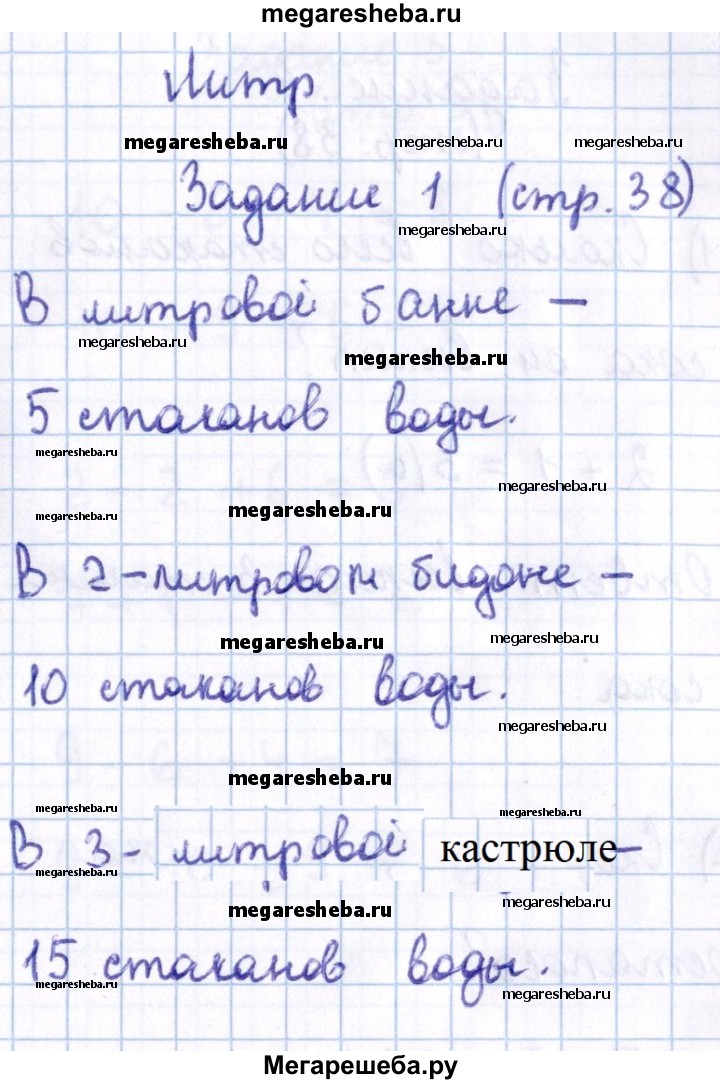 megaresheba.ru
Литр
megaresheba.ru megaresheba.ru megaresheba.ru
Задание 1 (стр. 38)
megaresheba.ru
В литровой банке –
megaresheba.ru
megaresheba.ru
5 стаканов воды.
megaresheba.ru
megaresheba.ru
megaresheba.ru megaresheba.ru
В 2-литровом бидоне –
megaresheba.ru megaresheba.ru
10 стаканов воды.
megaresheba.ru
megaresheba.ru
megaresheba.ru megaresheba.ru
В 3-литровой кастрюле –
megaresheba.ru
megaresheba.ru megaresheba.ru
15 стаканов воды.
megaresheba.ru megaresheba.ru
Мегарешеба.ру